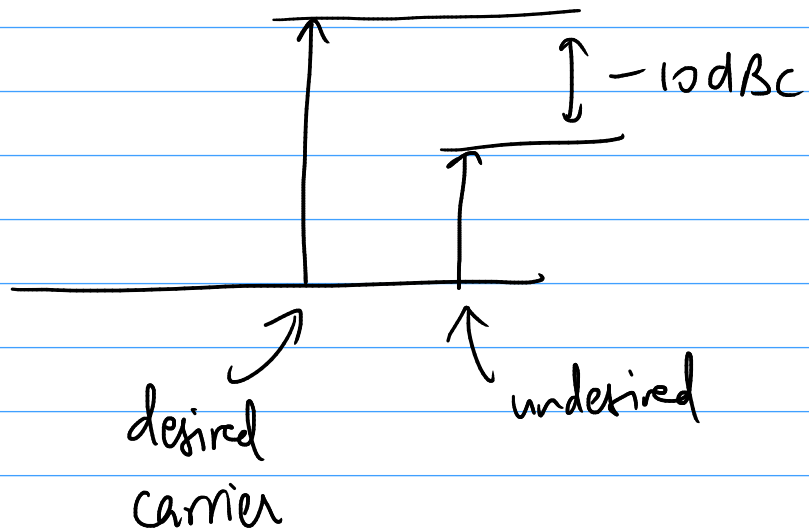 -10dBC
desired
carrier
undesired